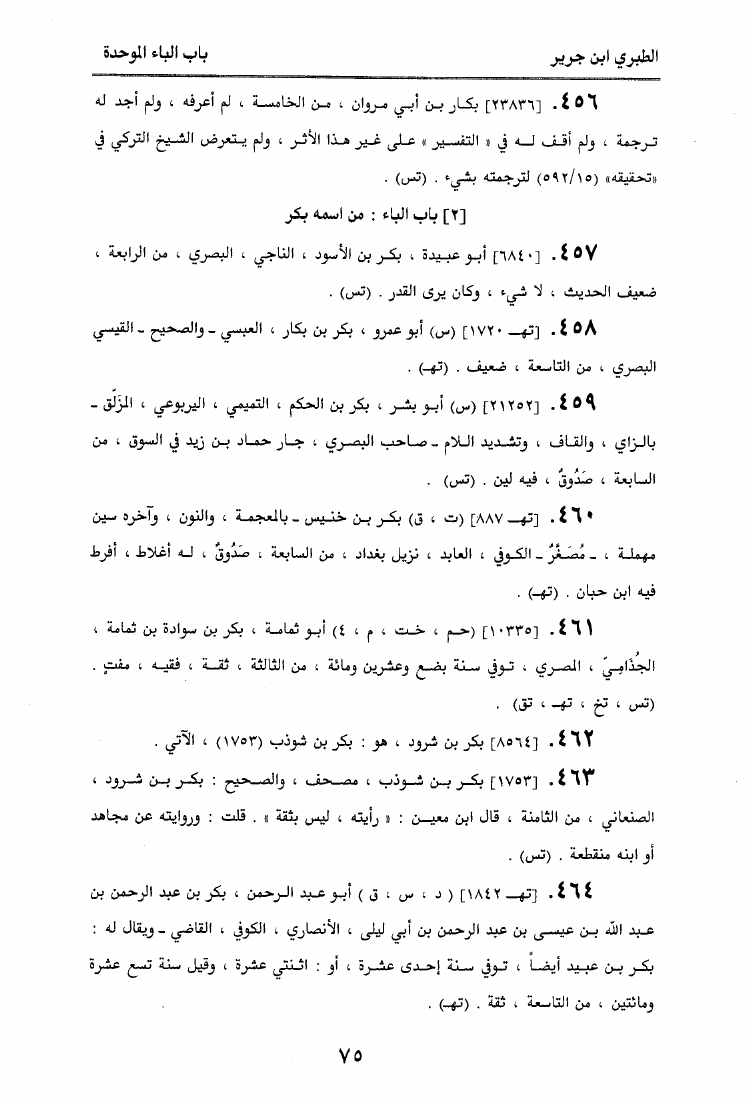 الطبري ابن جرير
باب الباء الموحدة
٤٥٦. [٢٣٨٣٦] بكار بن أبي مروان ، من الخامسة ، لم أعرفه ، ولم أجد له
ترجمة ، ولم أقف له في « التفسير » على غير هذا الأثر ، ولم يتعرض الشيخ التركي في
«تحقيقه» (٥٩٢/١٥) لترجمته بشيء . (تس) .
[٢] باب الباء : من اسمه بكر
٤٥٧. [٦٨٤٠] أبو عبيدة ، بكر بن الأسود ، الناجي ، البصري ، من الرابعة ،
ضعيف الحديث ، لا شيء ، وكان يرى القدر . (تس) .
٤٥٨. [تهـ ١٧٢٠] (س) أبو عمرو ، بكر بن بكار ، العبسي - والصحيح - القيسي
البصري ، من التاسعة ، ضعيف . (تهـ) .
٤٥٩. [٢١٢٥٢] (س) أبو بشر ، بكر بن الحكم ، التميمي ، اليربوعي ، المزَلَّق -
بالزاي ، والقاف ، وتشديد اللام - صاحب البصري ، جار حماد بن زيد في السوق ، من
السابعة ، صَدُوقٌ ، فيه لين . (تس) .
٤٦٠. [تهـ ٨٨٧] (ت ، ق) بكر بن خنيس - بالمعجمة ، والنون ، وآخره سين
مهملة ، - مُصَغَّرٌ - الكوفي ، العابد ، نزيل بغداد ، من السابعة ، صَدُوقٌ ، له أغلاط ، أفرط
فيه ابن حبان . (تهـ) .
٤٦١. [١٠٣٣٥] (حم ، خت ، م ، ٤) أبو ثمامة ، بكر بن سوادة بن ثمامة ،
الجُذَاميّ ، المصري ، توفي سنة بضع وعشرين ومائة ، من الثالثة ، ثقة ، فقيه ، مفتٍ .
(تس ، تخ ، تهـ ، تق) .
٤٦٢. [٨٥٦٤] بكر بن شرود ، هو : بكر بن شوذب (١٧٥٣) ، الآتي .
٤٦٣. [١٧٥٣] بكر بن شوذب ، مصحف ، والصحيح : بكر بن شرود ،
الصنعاني ، من الثامنة ، قال ابن معين : « رأيته ، ليس بثقة » . قلت : وروايته عن مجاهد
أو ابنه منقطعة . (تس) .
٤٦٤. [تهـ ١٨٤٢] ( د ، س ، ق ) أبو عبد الرحمن ، بكر بن عبد الرحمن بن
عبد الله بن عيسى بن عبد الرحمن بن أبي ليلى ، الأنصاري ، الكوفي ، القاضي - ويقال له :
بكر بن عبيد أيضاً ، توفي سنة إحدى عشرة ، أو : اثنتي عشرة ، وقيل سنة تسع عشرة
ومائتين ، من التاسعة ، ثقة . (تهـ) .
٧٥